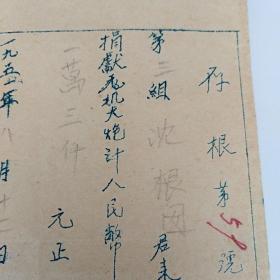 存根第59號
第三組 沈根因 君來
捐獻飛机大炮計人民幣
一萬三仟 元正
一九五一年八月十二日